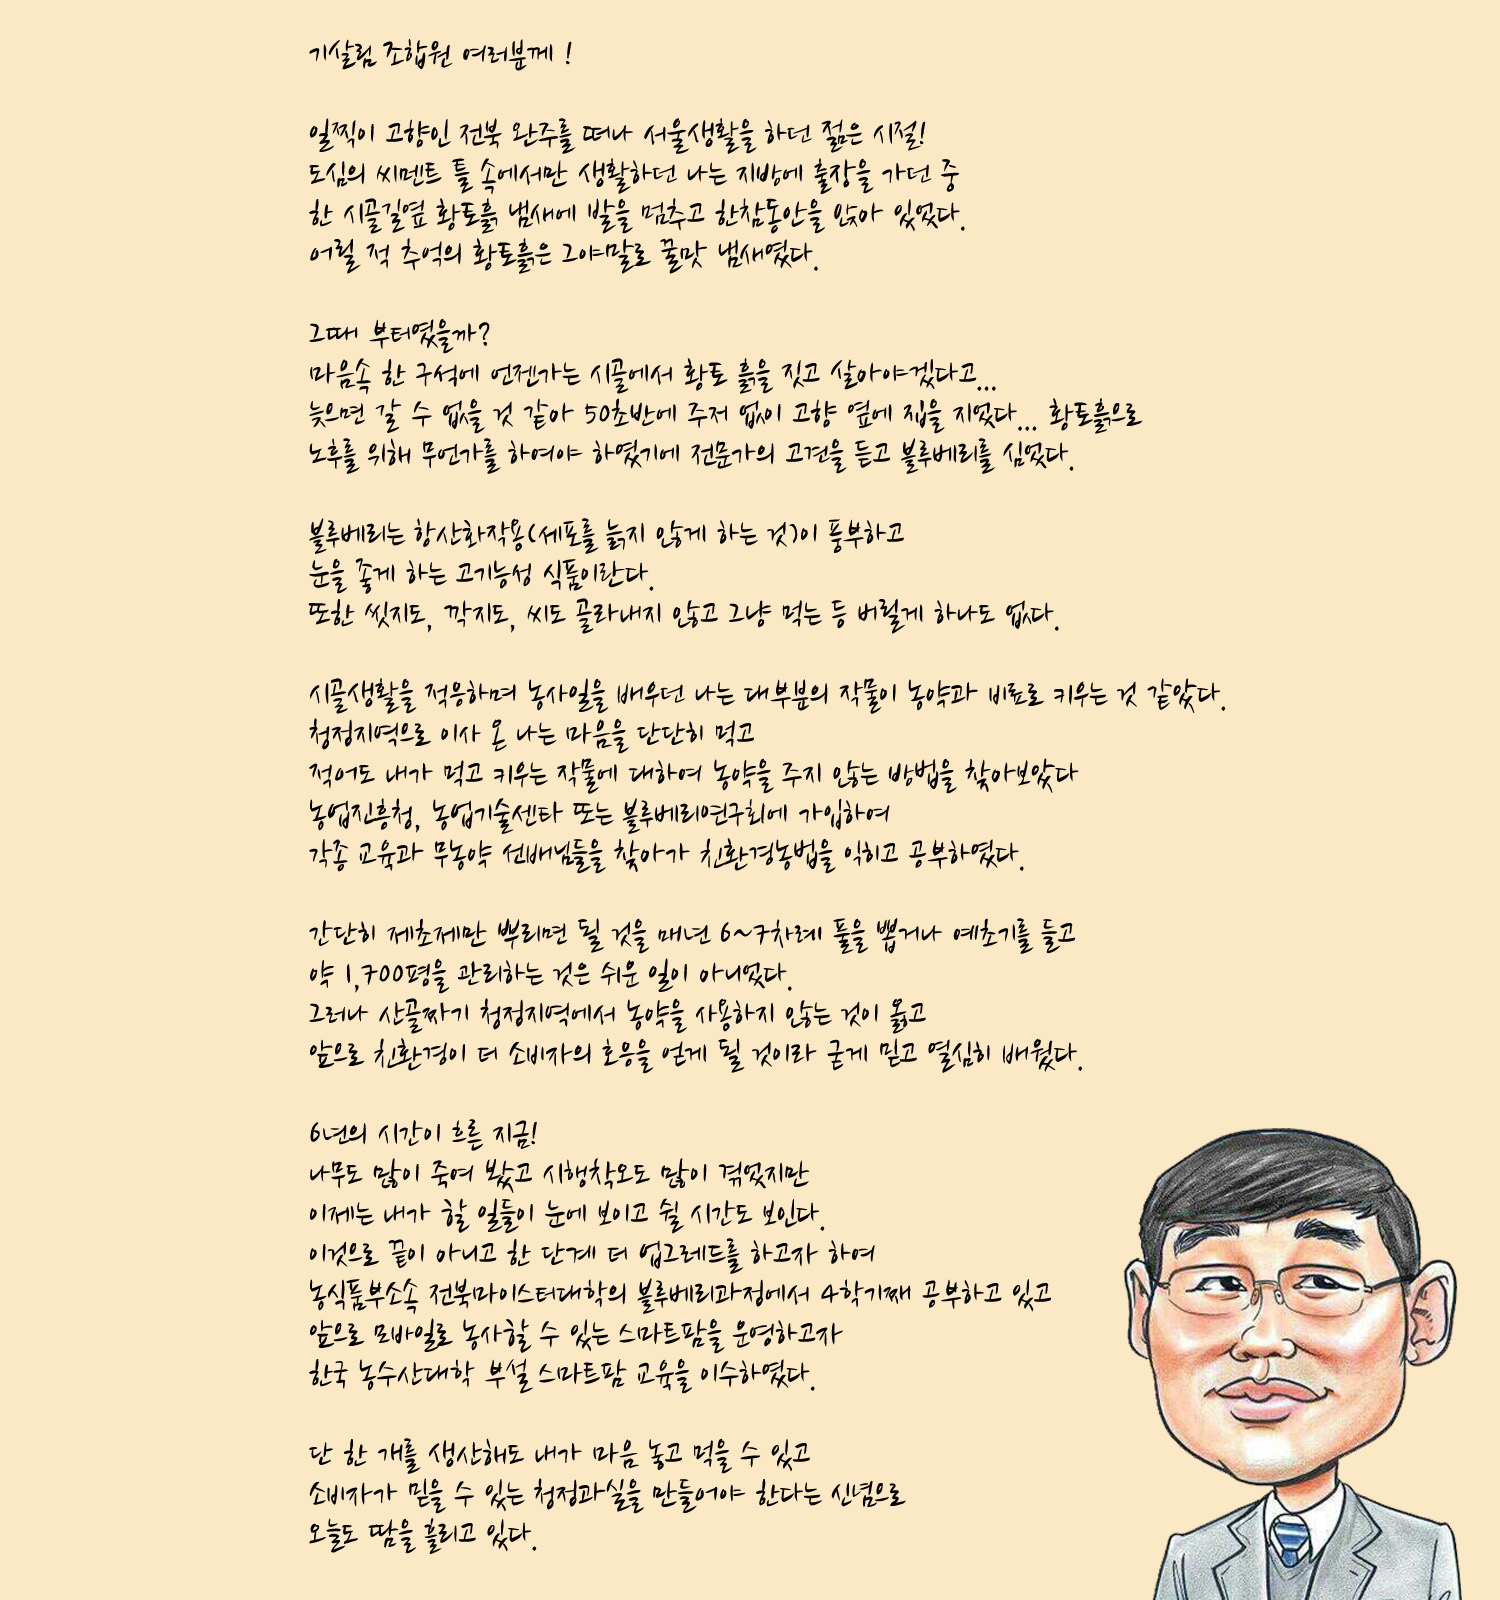 기살림 조합원 여러분께 !
일찍이 고향인 전북 완주를 떠나 서울생활을 하던 젊은 시절!
도심의 씨멘트 틀 속에서만 생활하던 나는 지방에 출장을 가던 중
한 시골길옆 황토흙 냄새에 발을 멈추고 한참동안을 앉아 있었다.
어릴 적 추억의 황토흙은 그야말로 꿀맛 냄새였다.
그때 부터였을까?
마음속 한 구석에 언젠가는 시골에서 황토 흙을 짓고 살아야겠다고...
늦으면 갈 수 없을 것 같아 50초반에 주저 없이 고향 옆에 집을 지었다... 황토흙으로
노후를 위해 무언가를 하여야 하였기에 전문가의 고견을 듣고 블루베리를 심었다.
블루베리는 항산화작용(세포를 늙지 않게 하는 것)이 풍부하고
눈을 좋게 하는 고기능성 식품이란다.
또한 씻지도, 깍지도, 씨도 골라내지 않고 그냥 먹는 등 버릴게 하나도 없다.
시골생활을 적응하며 농사일을 배우던 나는 대부분의 작물이 농약과 비료로 키우는 것 같았다.
청정지역으로 이사 온 나는 마음을 단단히 먹고
적어도 내가 먹고 키우는 작물에 대하여 농약을 주지 않는 방법을 찾아보았다
농업진흥청, 농업기술센타 또는 블루베리연구회에 가입하여
각종 교육과 무농약 선배님들을 찾아가 친환경농법을 익히고 공부하였다.
간단히 제초제만 뿌리면 될 것을 매년 6~7차례 풀을 뽑거나 예초기를 들고
약 1,700평을 관리하는 것은 쉬운 일이 아니었다.
그러나 산골짜기 청정지역에서 농약을 사용하지 않는 것이 옳고
앞으로 친환경이 더 소비자의 호응을 얻게 될 것이라 굳게 믿고 열심히 배웠다.
6년의 시간이 흐른 지금!
나무도 많이 죽여 봤고 시행착오도 많이 겪었지만
이제는 내가 할 일들이 눈에 보이고 쉴 시간도 보인다.
이것으로 끝이 아니고 한 단계 더 업그레드를 하고자 하여
농식품부소속 전북마이스터대학의 블루베리과정에서 4학기째 공부하고 있고
앞으로 모바일로 농사할 수 있는 스마트팜을 운영하고자
한국 농수산대학 부설 스마트팜 교육을 이수하였다.
단 한 개를 생산해도 내가 마음 놓고 먹을 수 있고
소비자가 믿을 수 있는 청정과실을 만들어야 한다는 신념으로
오늘도 땀을 흘리고 있다.